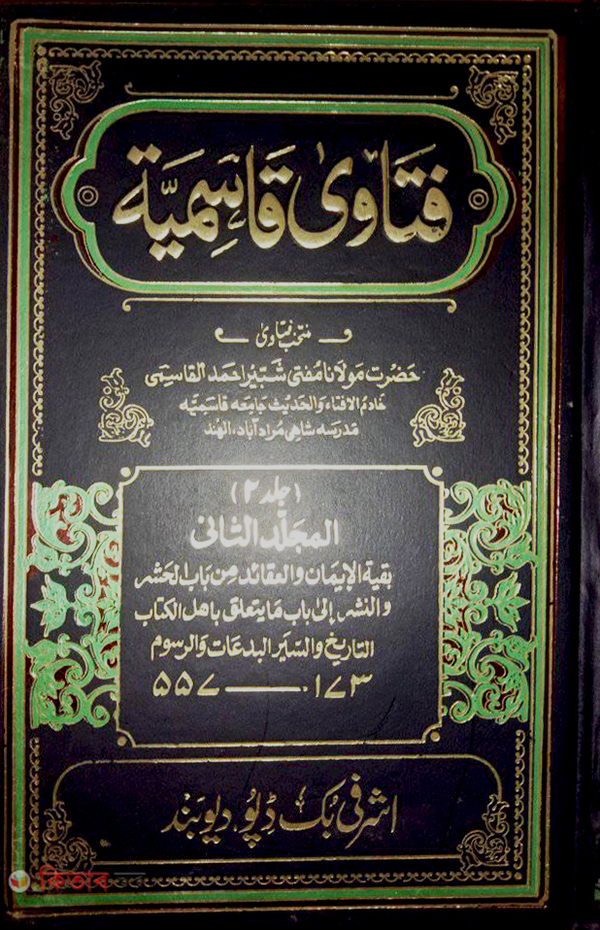 فتاویٰ قاسمیۃ
منتخب فتاویٰ
حضرت مولانا مفتی شبیر احمد القاسمی
خادم الافتاء والحدیث جامعہ قاسمیہ
مدرسہ شاہی مرادآباد، الہند
(جلد ۲)
المجلد الثانی
بقیة الإیمان والعقائد من باب الحشر
والنشر إلیٰ باب ما یتعلق باهل الکتاب
التاریخ والسیر البدعات والرسوم
۱۷۳ — ۵۵۷
اشرفی بک ڈپو، دیوبند
কিতাব